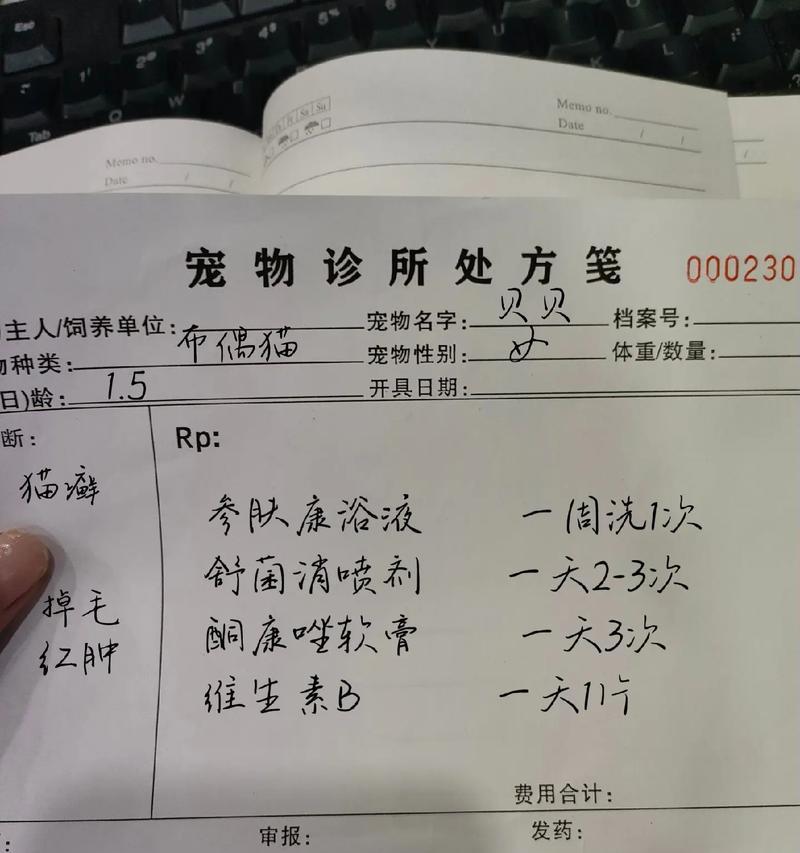 Esc
Tab
Q
W
Sa Su
Memo no.
Date / /
Memo no.
Date / /
宠物诊所处方笺 000230
主人/饲养单位: 宠物名字: 贝贝 档案号:
物种类: 布偶猫 宠物性别: 女 体重/数量:
(日)龄: 1.5 开具日期:
断: Rp:
猫癣
参肤康浴液 一周洗1次
舒菌消喷剂 一天2-3次
掉毛
酮康唑软膏 一天3次
红肿
维生素B 一天1片
费用合计:
审报: 发药: